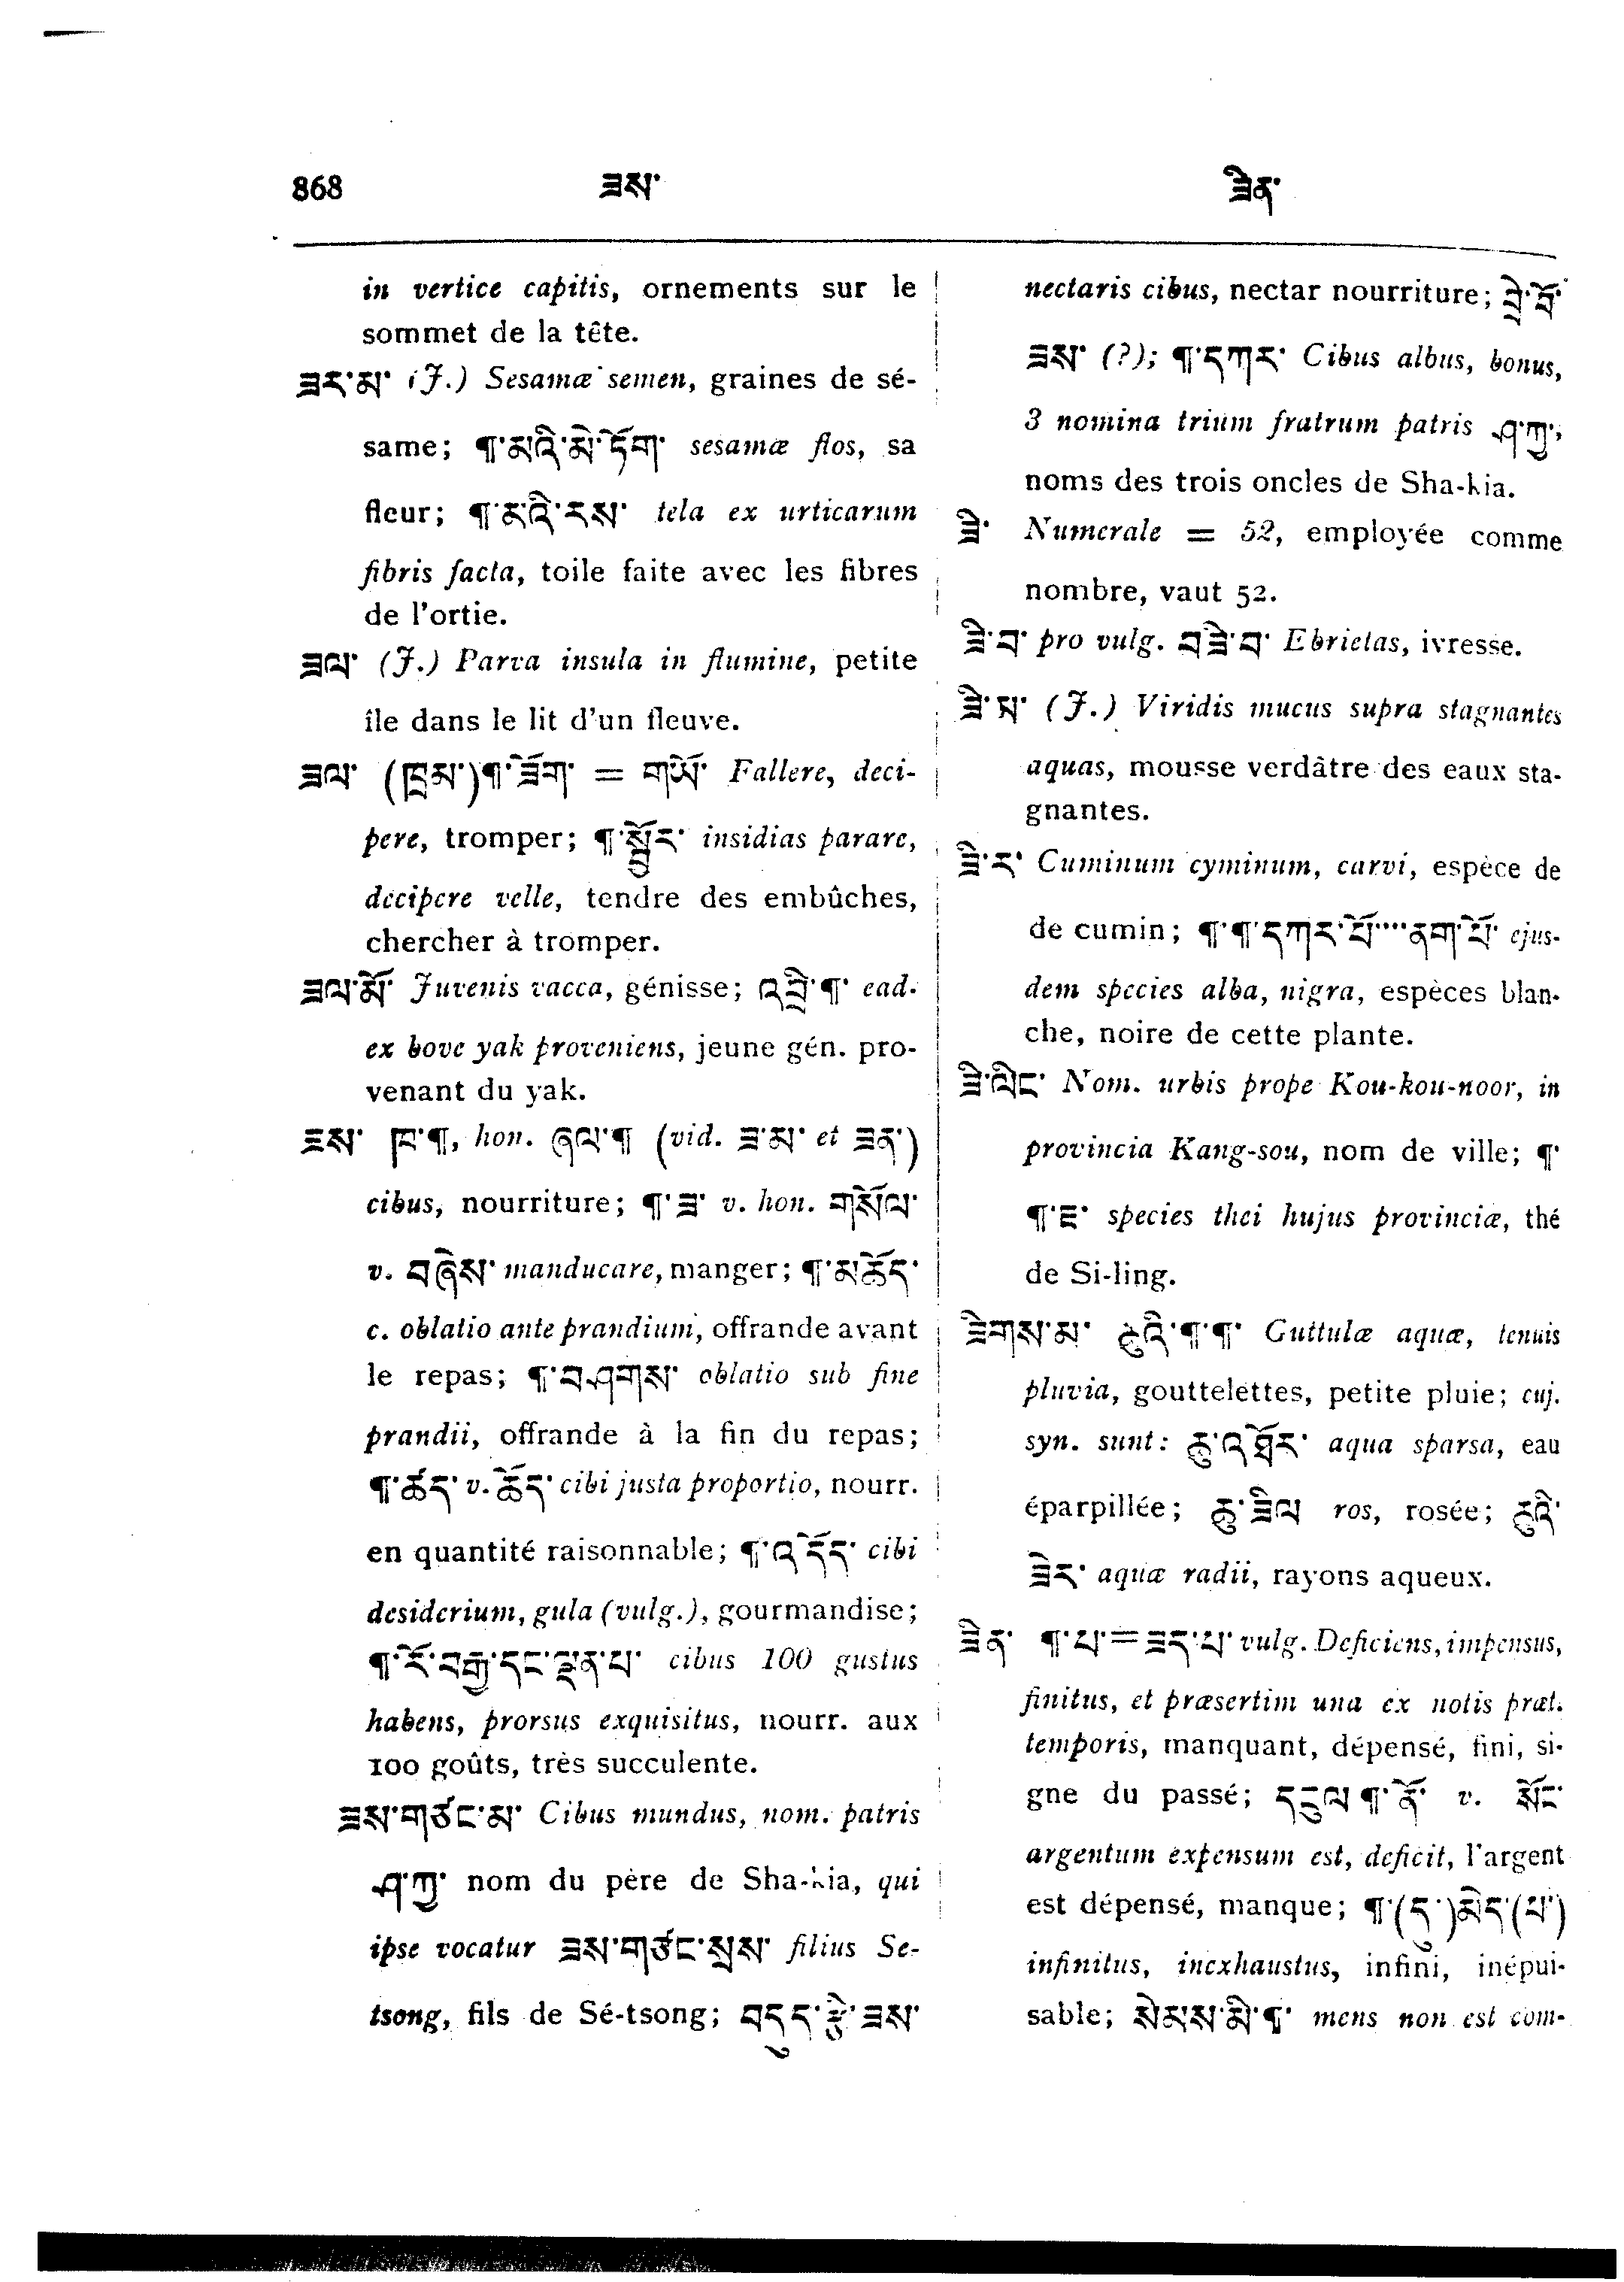 868 ཟས་ ཟིན་
in vertice capitis, ornements sur le
sommet de la tête.
ཟར་མ་ (J.) Sesamæ semen, graines de sé-
same; ¶་མའི་མེ་ཏོག་ sesamæ flos, sa
fleur; ¶་མའི་རས་ tela ex urticarum
fibris facta, toile faite avec les fibres
de l'ortie.
ཟལ་ (J.) Parva insula in flumine, petite
île dans le lit d'un fleuve.
ཟལ་ (ཁྲམ་)¶་ཟོག་ = གཡོ་ Fallere, deci-
pere, tromper; ¶་སྦྱོར་ insidias parare,
decipere velle, tendre des embûches,
chercher à tromper.
ཟལ་མོ་ Juvenis vacca, génisse; འབྲི་¶་ ead.
ex bove yak proveniens, jeune gén. pro-
venant du yak.
ཟས་ ཁ་¶, hon. ཞལ་¶ (vid. ཟ་མ་ et ཟན་)
cibus, nourriture; ¶་ཟ་ v. hon. གསོལ་
v. བཞེས་ manducare, manger; ¶་མཆོད་
c. oblatio ante prandium, offrande avant
le repas; ¶་བཤགས་ oblatio sub fine
prandii, offrande à la fin du repas;
¶་ཚད་ v. ཚོད་ cibi justa proportio, nourr.
en quantité raisonnable; ¶་འདོད་ cibi
desiderium, gula (vulg.), gourmandise;
¶་རོ་བརྒྱ་དང་ལྡན་པ་ cibus 100 gustus
habens, prorsus exquisitus, nourr. aux
100 goûts, très succulente.
ཟས་གཙང་མ་ Cibus mundus, nom. patris
ཤ་ཀྱ་ nom du père de Sha-kia, qui
ipse vocatur ཟས་གཙང་སྲས་ filius Se-
tsong, fils de Sé-tsong; བདུད་རྩི་ཟས་
nectaris cibus, nectar nourriture; བྲེ་བོ་
ཟས་ (?); ¶་དཀར་ Cibus albus, bonus,
3 nomina trium fratrum patris ཤ་ཀྱ་,
noms des trois oncles de Sha-kia.
ཟི་ Numerale = 52, employée comme
nombre, vaut 52.
ཟི་བ་ pro vulg. བཟི་བ་ Ebrietas, ivresse.
ཟི་མ་ (J.) Viridis mucus supra stagnantes
aquas, mousse verdâtre des eaux sta-
gnantes.
ཟི་ར་ Cuminum cyminum, carvi, espèce de
de cumin; ¶་¶་དཀར་པོ་་་་ནག་པོ་ ejus-
dem species alba, nigra, espèces blan-
che, noire de cette plante.
ཟི་ལིང་ Nom. urbis prope Kou-kou-noor, in
provincia Kang-sou, nom de ville; ¶་
¶་ཇ་ species thei hujus provinciæ, thé
de Si-ling.
ཟེགས་མ་ ཆུའི་¶་¶་ Guttulæ aquæ, tenuis
pluvia, gouttelettes, petite pluie; cuj.
syn. sunt: ཆུ་འཐོར་ aqua sparsa, eau
éparpillée; ཆུ་ཟིལ ros, rosée; ཆུའི་
ཟེར་ aquæ radii, rayons aqueux.
ཟིན་ ¶་པ་=ཟད་པ་ vulg. Deficiens, impensus,
finitus, et præsertim una ex notis præt.
temporis, manquant, dépensé, fini, si-
gne du passé; དངུལ¶་ནོ་ v. སོང་
argentum expensum est, deficit, l'argent
est dépensé, manque; ¶་(དུ་)མེད་(པ་)
infinitus, inexhaustus, infini, inépui-
sable; སེམས་མི་¶་ mens non est com-